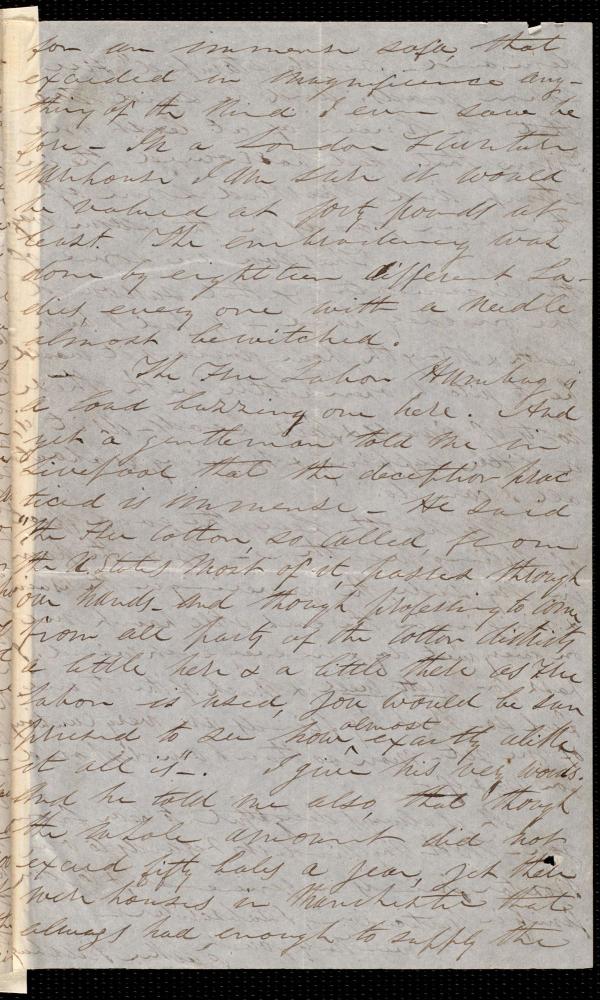 for an immense sofa, that
exceeded in magnificence any-
thing of the kind I ever saw be
fore - In a London Furniture
Warehouse I am sure it would
be valued at forty pounds at
least. The embroidery was
done by eighteen different La-
dies, every one with a needle
almost bewitched.
- The Free Labor Humbug is
a loud buzzing one here. And
yet a gentleman told me in
Liverpool that the deception prac
ticed is immense - He said
"the Free cotton, so called, from
the U States most of it, passed through
our hands - and though professing to come
from all parts of the cotton districts
a little here & a little there as Free
labor is used, you would be sur
prised to see how almost exactly alike
it all is" -. I give his very words.
And he told me also, that "though
the whole amount did not
exceed fifty bales a year, yet there
were houses in Manchester that
always had enough to supply the